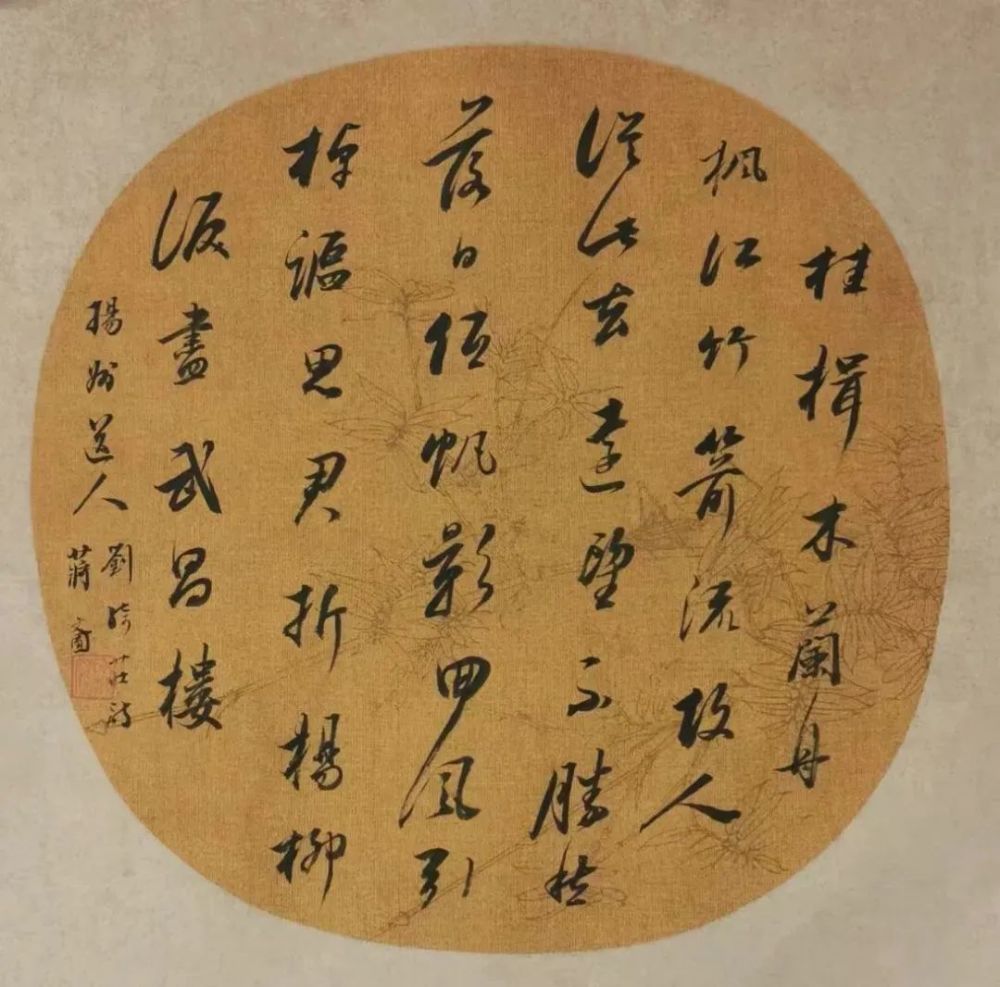 桂楫木蘭舟
楓江竹箭流故人
從此去遠望不勝愁
落日低帆影回風引
棹謳思君折楊柳
淚盡武昌樓
揚州送人 劉綺莊詩
蔣